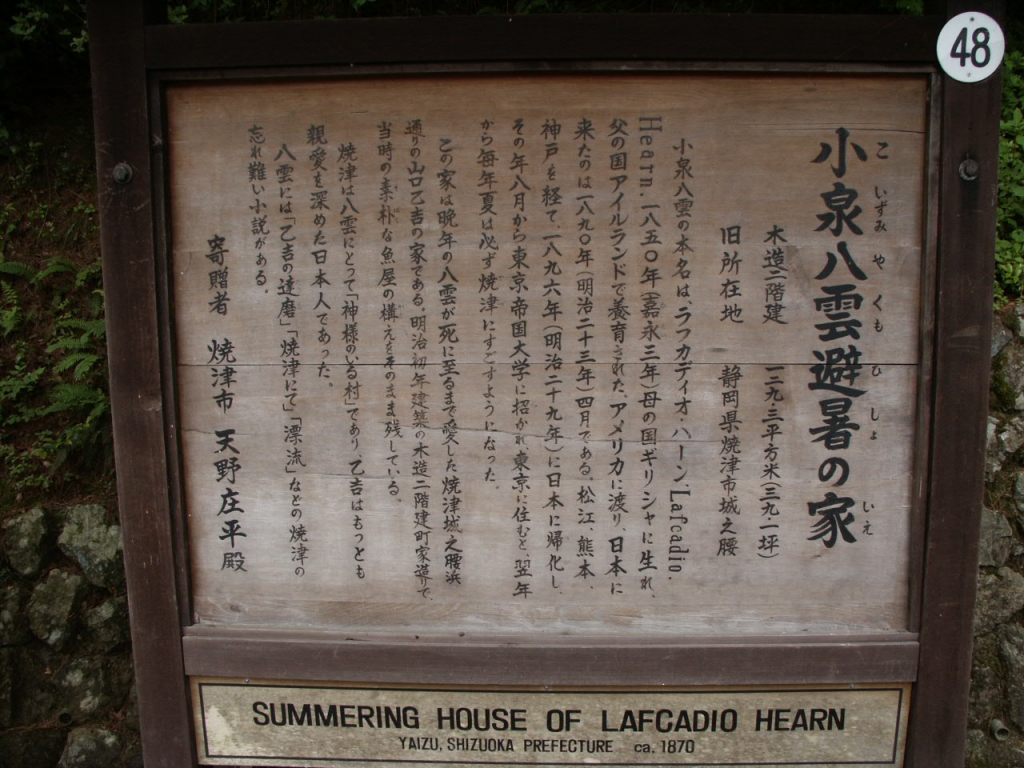 48
小泉八雲避暑の家
こいずみやくもひしょいえ
木造二階建 一二九、三平方米(三九・一坪)
旧所在地 静岡県焼津市城之腰
小泉八雲の本名は、ラフカディオ・ハーン、Lafcadio.
Hearn、一八五〇年(嘉永三年)母の国ギリシャに生れ、
父の国アイルランドで養育された。アメリカに渡り、日本に
来たのは一八九〇年(明治二十三年)四月である。松江、熊本、
神戸を経て、一八九六年(明治二十九年)に日本に帰化し、
その年八月から東京帝国大学に招かれ東京に住むと、翌年
から毎年夏は必ず焼津にすごすようになった。
この家は晩年の八雲が死に至るまで愛した焼津城之腰浜
通りの山口乙吉の家である。明治初年建築の木造二階建町家造りで、
当時の素朴な魚屋の構えをそのまま残している。
焼津は八雲にとって「神様のいる村」であり、乙吉はもっとも
親愛を深めた日本人であった。
八雲には「乙吉の達磨」「焼津にて」「漂流」などの焼津の
忘れ難い小説がある。
寄贈者 焼津市 天野庄平殿
SUMMERING HOUSE OF LAFCADIO HEARN
YAIZU, SHIZUOKA PREFECTURE ca. 1870